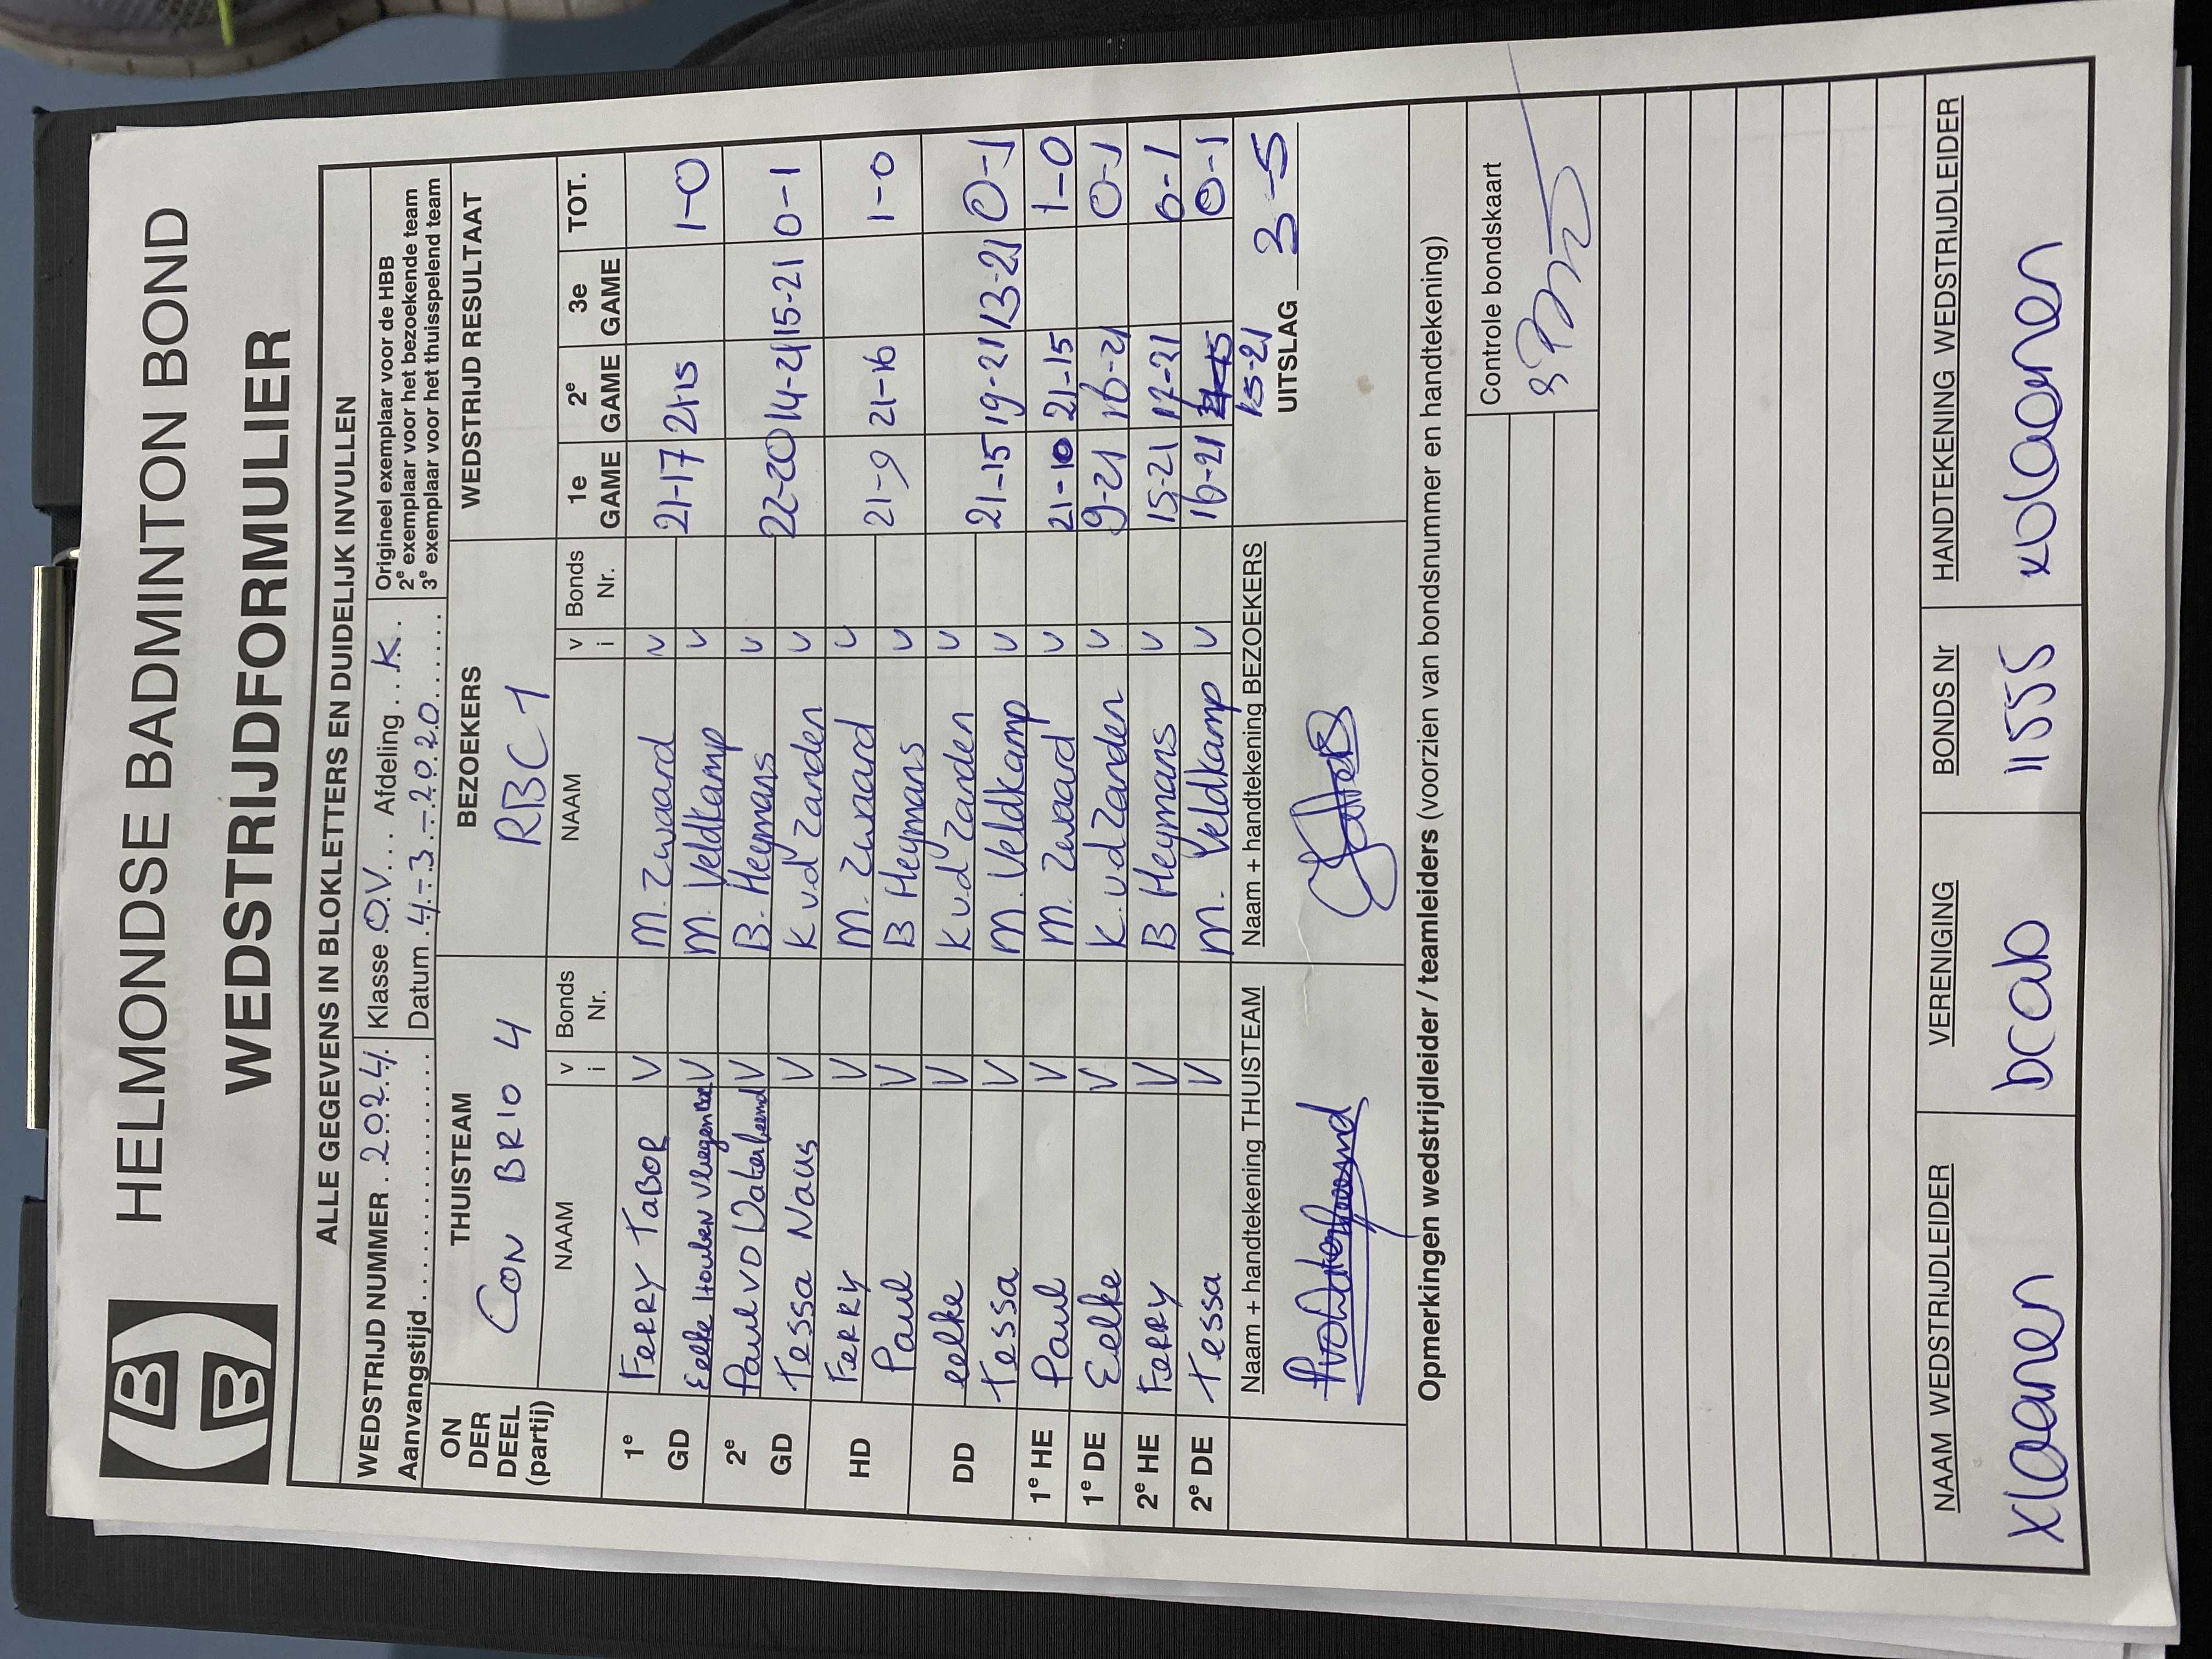 HELMONDSE BADMINTON BOND
WEDSTRIJDFORMULIER
ALLE GEGEVENS IN BLOKLETTERS EN DUIDELIJK INVULLEN
WEDSTRIJD NUMMER . 2024. Klasse O.V... Afdeling .. K..
Aanvangstijd .......... Datum 4-3-2020......
Origineel exemplaar voor de HBB
2e exemplaar voor het bezoekende team
3e exemplaar voor het thuisspelend team
ON DER DEEL (partij) THUISTEAM BEZOEKERS WEDSTRIJD RESULTAAT
CON BRIO 4 RBC 1
NAAM vi Bonds Nr. NAAM vi Bonds Nr. 1e GAME 2e GAME 3e GAME TOT.
1e FERRY TABOR V M. Zwaard V
GD Eelke Houben V M. Veldkamp V 21-17 21-15 1-0
2e Paul V B. Heymans V
GD Tessa Naus V K v.d Zanden V 22-20 14-21 15-21 0-1
HD FERRY V M. Zwaard V
Paul V B Heymans V 21-9 21-16 1-0
DD eelke V K v.d Zanden V
Tessa V M. Veldkamp V 21-15 19-21 13-21 0-1
1e HE Paul V M. Zwaard V 21-10 21-15 1-0
1e DE Eelke V K. v.d Zanden V 9-21 16-21 0-1
2e HE Ferry V B Heymans V 15-21 17-21 0-1
2e DE Tessa V M. Veldkamp V 16-21 0-1
15-21
Naam + handtekening THUISTEAM Naam + handtekening BEZOEKERS UITSLAG 3-5
Opmerkingen wedstrijdleider / teamleiders (voorzien van bondsnummer en handtekening)
Controle bondskaart
NAAM WEDSTRIJDLEIDER VERENIGING BONDS Nr HANDTEKENING WEDSTRIJDLEIDER
bcab 11555